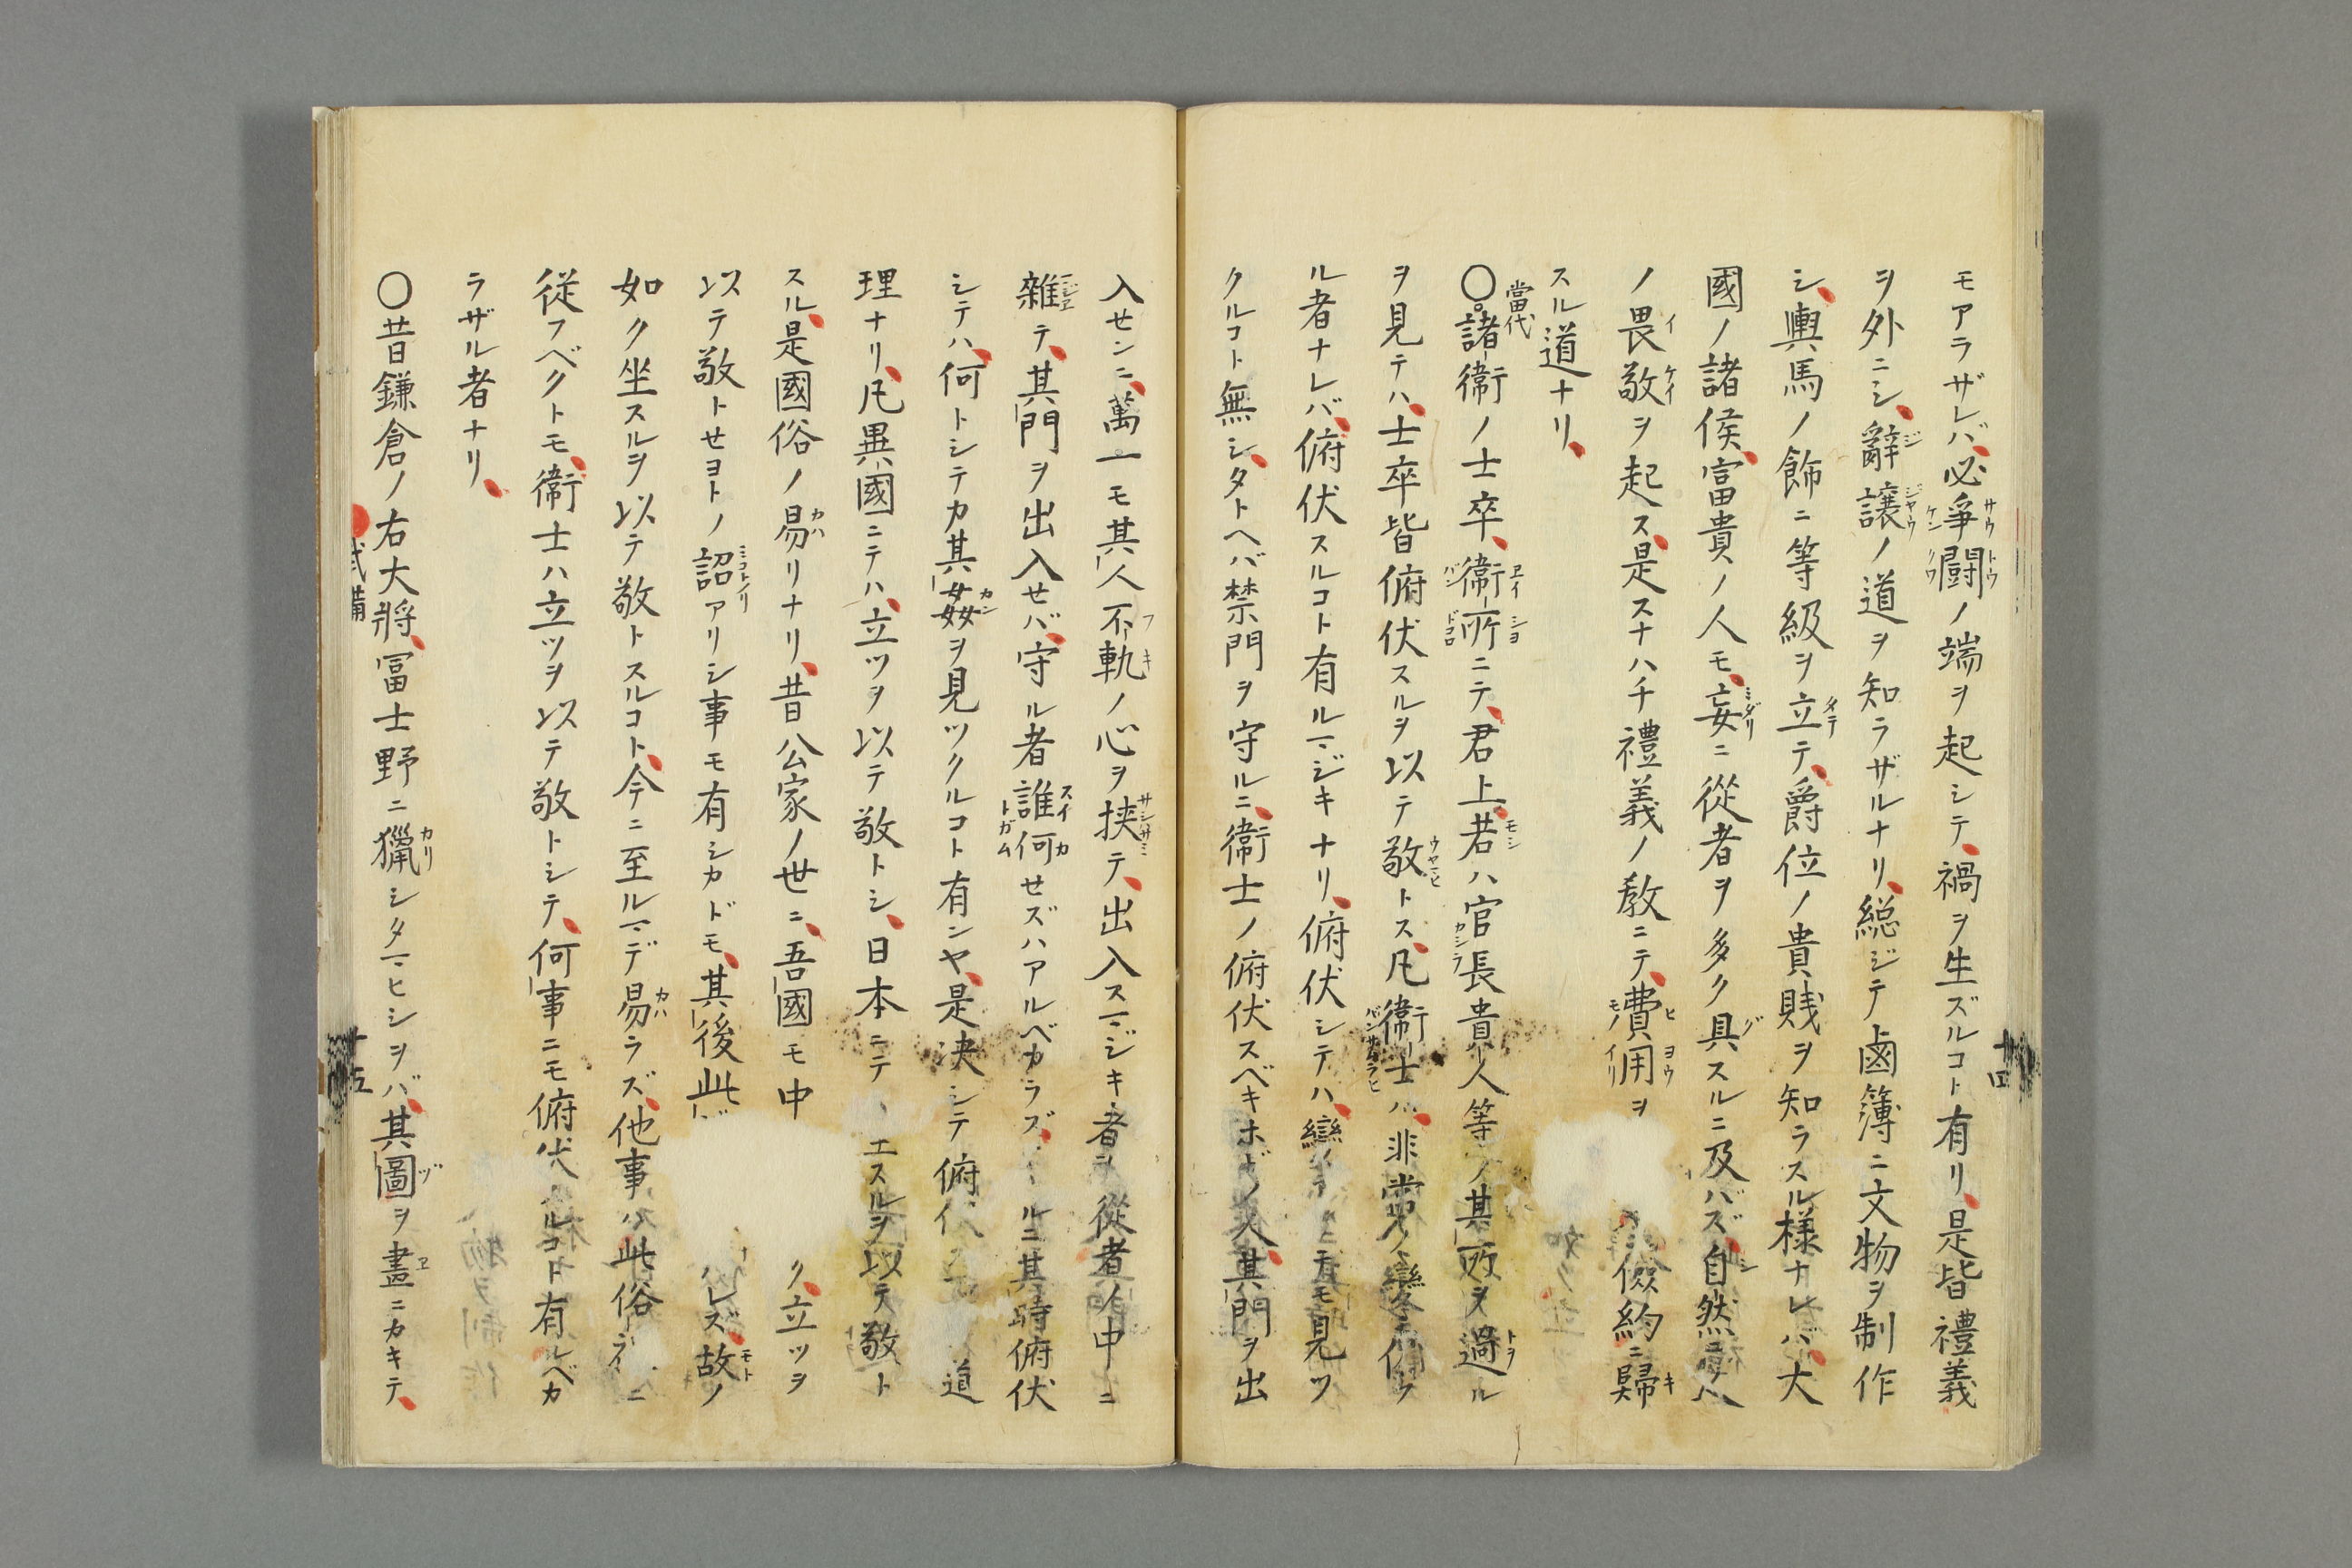 モアラザレバ、必爭闘ノ端ヲ起シテ、禍ヲ生ズルコト有リ、是皆禮義
ヲ外ニシ、辭譲ノ道ヲ知ラザルナリ、総ジテ鹵簿ニ文物ヲ制作
シ、輿馬ノ飾ニ等級ヲ立テ、爵位ノ貴賎ヲ知ラスル様ナレバ、大
國ノ諸侯、富貴ノ人モ、妄ニ從者ヲ多ク具スルニ及バズ、自然ニ人
ノ畏敬ヲ起ス、是スナハチ禮義ノ教ニテ、費用ヲ 儉約ニ歸
スル道ナリ、
〇當代諸衞ノ士卒、衞所ニテ、君上、若ハ官長貴人等ノ其所ヲ過ル
ヲ見テハ、士卒皆俯伏スルヲ以テ敬トス、凡衞士ハ、非常ノ變ニ備フ
ル者ナレバ、俯伏スルコト有ルマジキナリ、俯伏シテハ、變 モ見ツ
クルコト無シ、タトヘバ禁門ヲ守ルニ、衞士ノ俯伏スベキホドノ人、其門ヲ出
入センニ、萬一モ其人不軌ノ心ヲ挟テ、出入スマジキ者ヲ從者ノ中ニ
雜テ、其門ヲ出入セバ、守ル者誰何セズハアルベカラズ、 ルニ其時俯伏
シテハ、何トシテカ其姦ヲ見ツクルコト有ンヤ、是决シテ俯伏 道
理ナリ、凡異國ニテハ、立ツヲ以テ敬トシ、日本ニテ エスルヲ以テ敬ト
スル、是國俗ノ易リナリ、昔公家ノ世ニ、吾國モ中 ク、立ツヲ
以テ敬トセヨトノ詔アリシ事モ有シカドモ、其後此 ハレズ、故ノ
如ク坐スルヲ以テ敬トスルコト、今ニ至ルマデ易ラズ、他事ハ此俗 ニ
從フベクトモ、衞士ハ立ツヲ以テ敬トシテ、何事ニモ俯伏 ルコト有ルベカ
ラザル者ナリ、
〇昔鎌倉ノ右大將、冨士野ニ獵シタマヒシヲバ、其圖ヲ畫ニカキテ、
武備